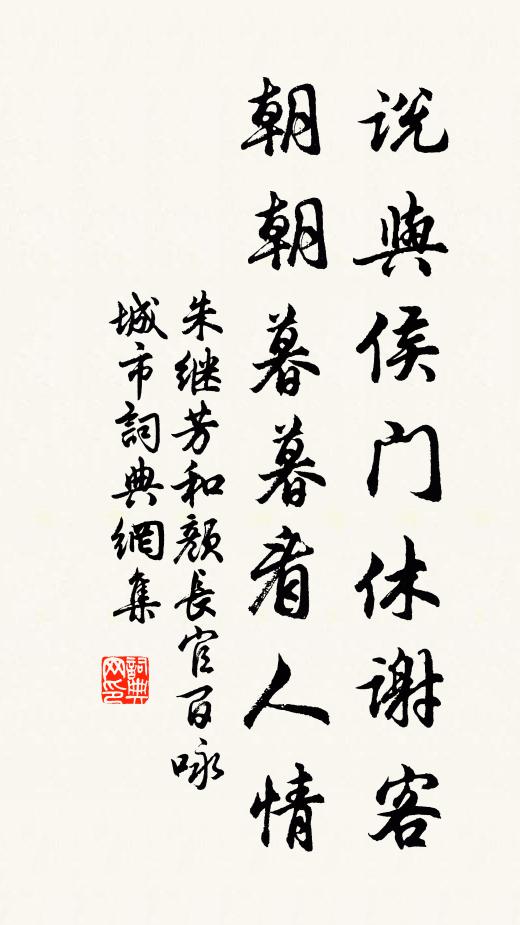 说與侯门休谢客
朝朝暮暮看人情
朱继芳和颜長官百咏
城市詞典網集
詞典网印